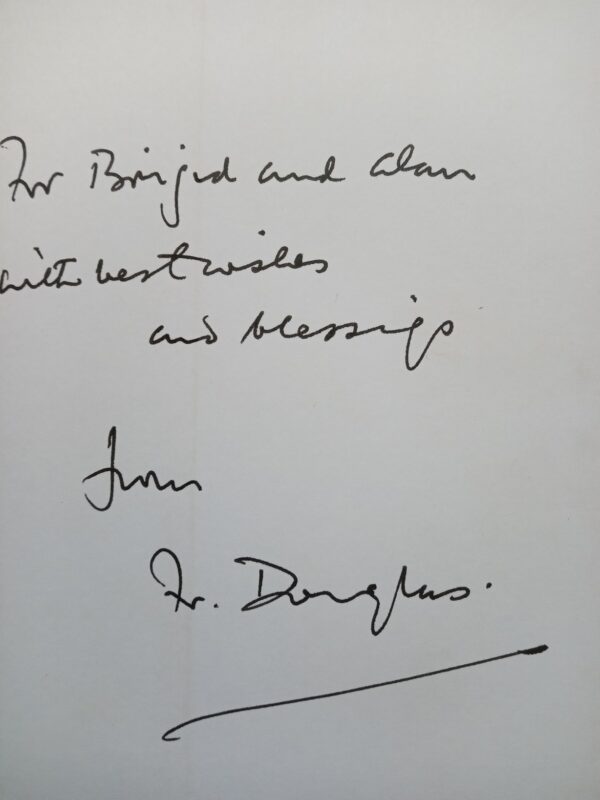 For Brigid and Alan
with best wishes
and blessings
from
Fr. Douglas.